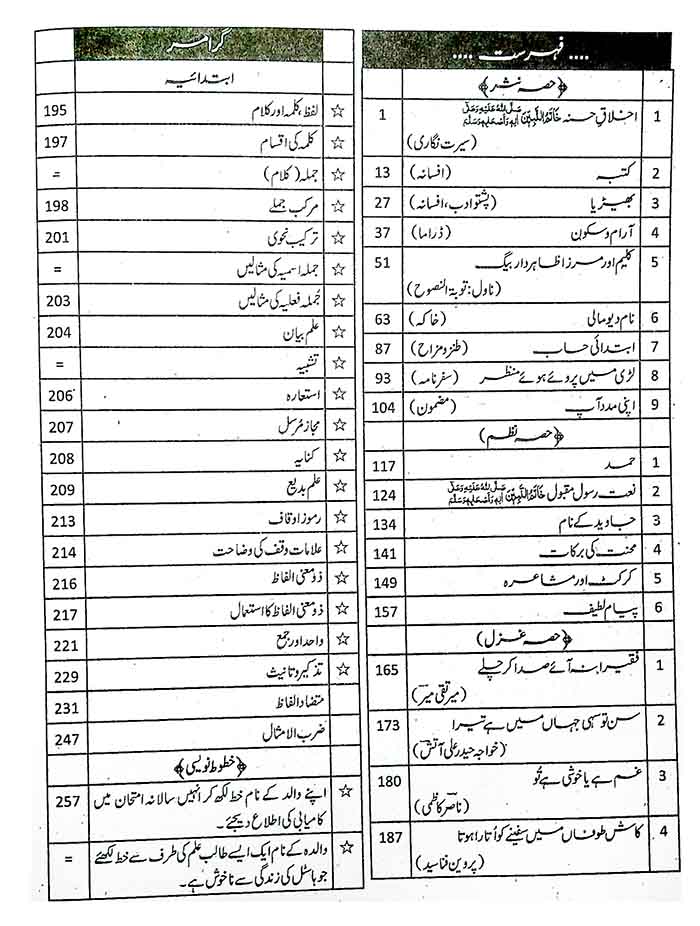 .... فہرست ....
﴿حصہ نثر﴾
1 اخلاقِ حسنہ خَاتَمُ النَّبِيّٖنَ صَلَّى اللهُ عَلَيْهِ وَعَلٰى اٰلِهٖ وَاَصْحَابِهٖ وَسَلَّمَ 1
(سیرت نگاری)
2 کتبہ (افسانہ) 13
3 بھیڑیا (پشتو ادب، افسانہ) 27
4 آرام و سکون (ڈراما) 37
5 کلیم اور مرزا ظاہر دار بیگ 51
(ناول: توبۃ النصوح)
6 نام دیو مالی (خاکہ) 63
7 ابتدائی حساب (طنز و مزاح) 87
8 لڑی میں پروئے ہوئے منظر (سفرنامہ) 93
9 اپنی مدد آپ (مضمون) 104
﴿حصہ نظم﴾
1 حمد 117
2 نعت رسول مقبول خَاتَمُ النَّبِيّٖنَ صَلَّى اللهُ عَلَيْهِ وَعَلٰى اٰلِهٖ وَاَصْحَابِهٖ وَسَلَّمَ 124
3 جاوید کے نام 134
4 محنت کی برکات 141
5 کرکٹ اور مشاعرہ 149
6 پیام لطیف 157
﴿حصہ غزل﴾
1 فقیرانہ آئے صدا کر چلے 165
(میر تقی میر)
2 سن تو سہی جہاں میں ہے تیرا 173
(خواجہ حیدر علی آتش)
3 غم ہے یا خوشی ہے تُو 180
(ناصر کاظمی)
4 کاش طوفاں میں سفینے کو اُتارا ہوتا 187
(پروین فنا سید)
گرامر
ابتدائیہ
☆ لفظ، کلمہ اور کلام 195
☆ کلمہ کی اقسام 197
☆ جملہ (کلام) =
☆ مرکب جملے 198
☆ ترکیب نحوی 201
☆ جملہ اسمیہ کی مثالیں =
☆ جُملہ فعلیہ کی مثالیں 203
☆ علم بیان 204
☆ تشبیہ =
☆ استعارہ 206
☆ مجاز مُرسل 207
☆ کنایہ 208
☆ علم بدیع 209
☆ رموز اوقاف 213
☆ علامات وقف کی وضاحت 214
☆ ذو معنی الفاظ 216
☆ ذو معنی الفاظ کا استعمال 217
☆ واحد اور جمع 221
☆ تذکیر و تانیث 229
متضاد الفاظ 231
ضرب الامثال 247
﴿خطوط نویسی﴾
☆ اپنے والد کے نام خط لکھ کر انہیں سالانہ امتحان میں 257
کامیابی کی اطلاع دیجئے۔
☆ والدہ کے نام ایک ایسے طالب علم کی طرف سے خط لکھئے =
جو ہاسٹل کی زندگی سے ناخوش ہے۔